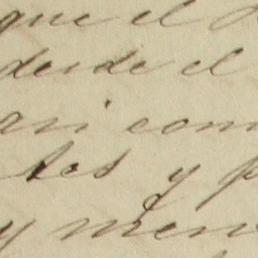 que el d
desde el
ari com
tes y p
y men